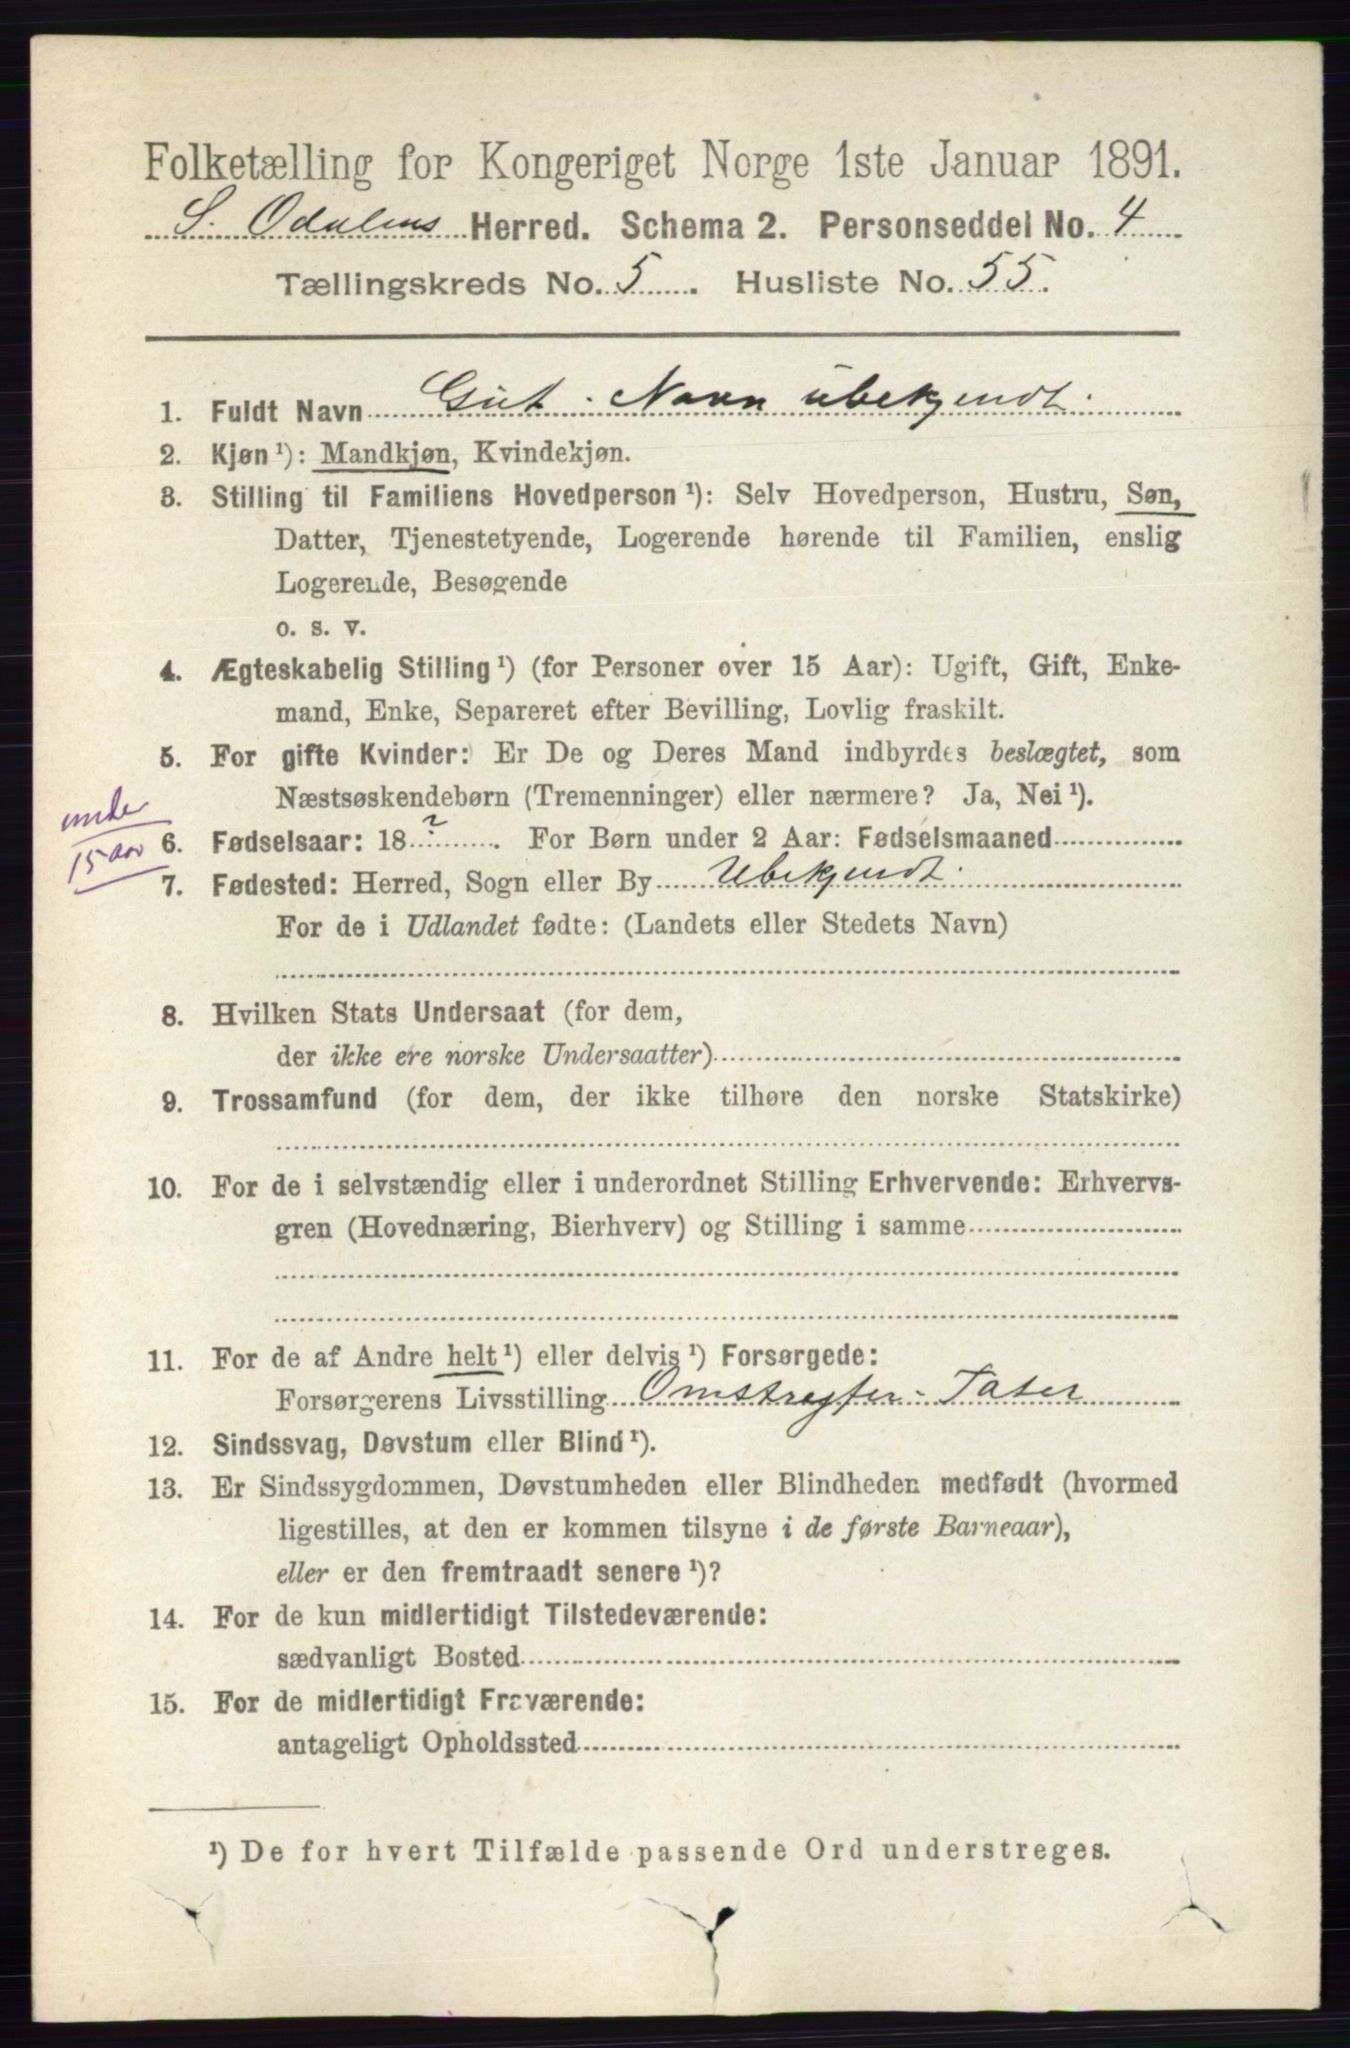 Folketælling for Kongeriget Norge 1ste Januar 1891.
S. Odalens Herred. Schema 2. Personseddel No. 4
Tællingskreds No. 5. Husliste No. 55.
1. Fuldt Navn Gut. Navn ubekjendt.
2. Kjøn ¹): Mandkjøn, Kvindekjøn.
3. Stilling til Familiens Hovedperson ¹): Selv Hovedperson, Hustru, Søn,
Datter, Tjenestetyende, Logerende hørende til Familien, enslig
Logerende, Besøgende
o. s. v.
4. Ægteskabelig Stilling ¹) (for Personer over 15 Aar): Ugift, Gift, Enke-
mand, Enke, Separeret efter Bevilling, Lovlig fraskilt.
5. For gifte Kvinder: Er De og Deres Mand indbyrdes beslægtet, som
Næstsøskendebørn (Tremenninger) eller nærmere? Ja, Nei ¹).
under
15 aar
6. Fødselsaar: 18 ? . For Børn under 2 Aar: Fødselsmaaned
7. Fødested: Herred, Sogn eller By Ubekjendt.
For de i Udlandet fødte: (Landets eller Stedets Navn)
8. Hvilken Stats Undersaat (for dem,
der ikke ere norske Undersaatter)
9. Trossamfund (for dem, der ikke tilhøre den norske Statskirke)
10. For de i selvstændig eller i underordnet Stilling Erhvervende: Erhvervs-
gren (Hovednæring, Bierhverv) og Stilling i samme
11. For de af Andre helt ¹) eller delvis ¹) Forsørgede:
Forsørgerens Livsstilling Omstreyfer-Tater
12. Sindssvag, Døvstum eller Blind ¹).
13. Er Sindssygdommen, Døvstumheden eller Blindheden medfødt (hvormed
ligestilles, at den er kommen tilsyne i de første Barneaar),
eller er den fremtraadt senere ¹)?
14. For de kun midlertidigt Tilstedeværende:
sædvanligt Bosted
15. For de midlertidigt Fraværende:
antageligt Opholdssted
¹) De for hvert Tilfælde passende Ord understreges.